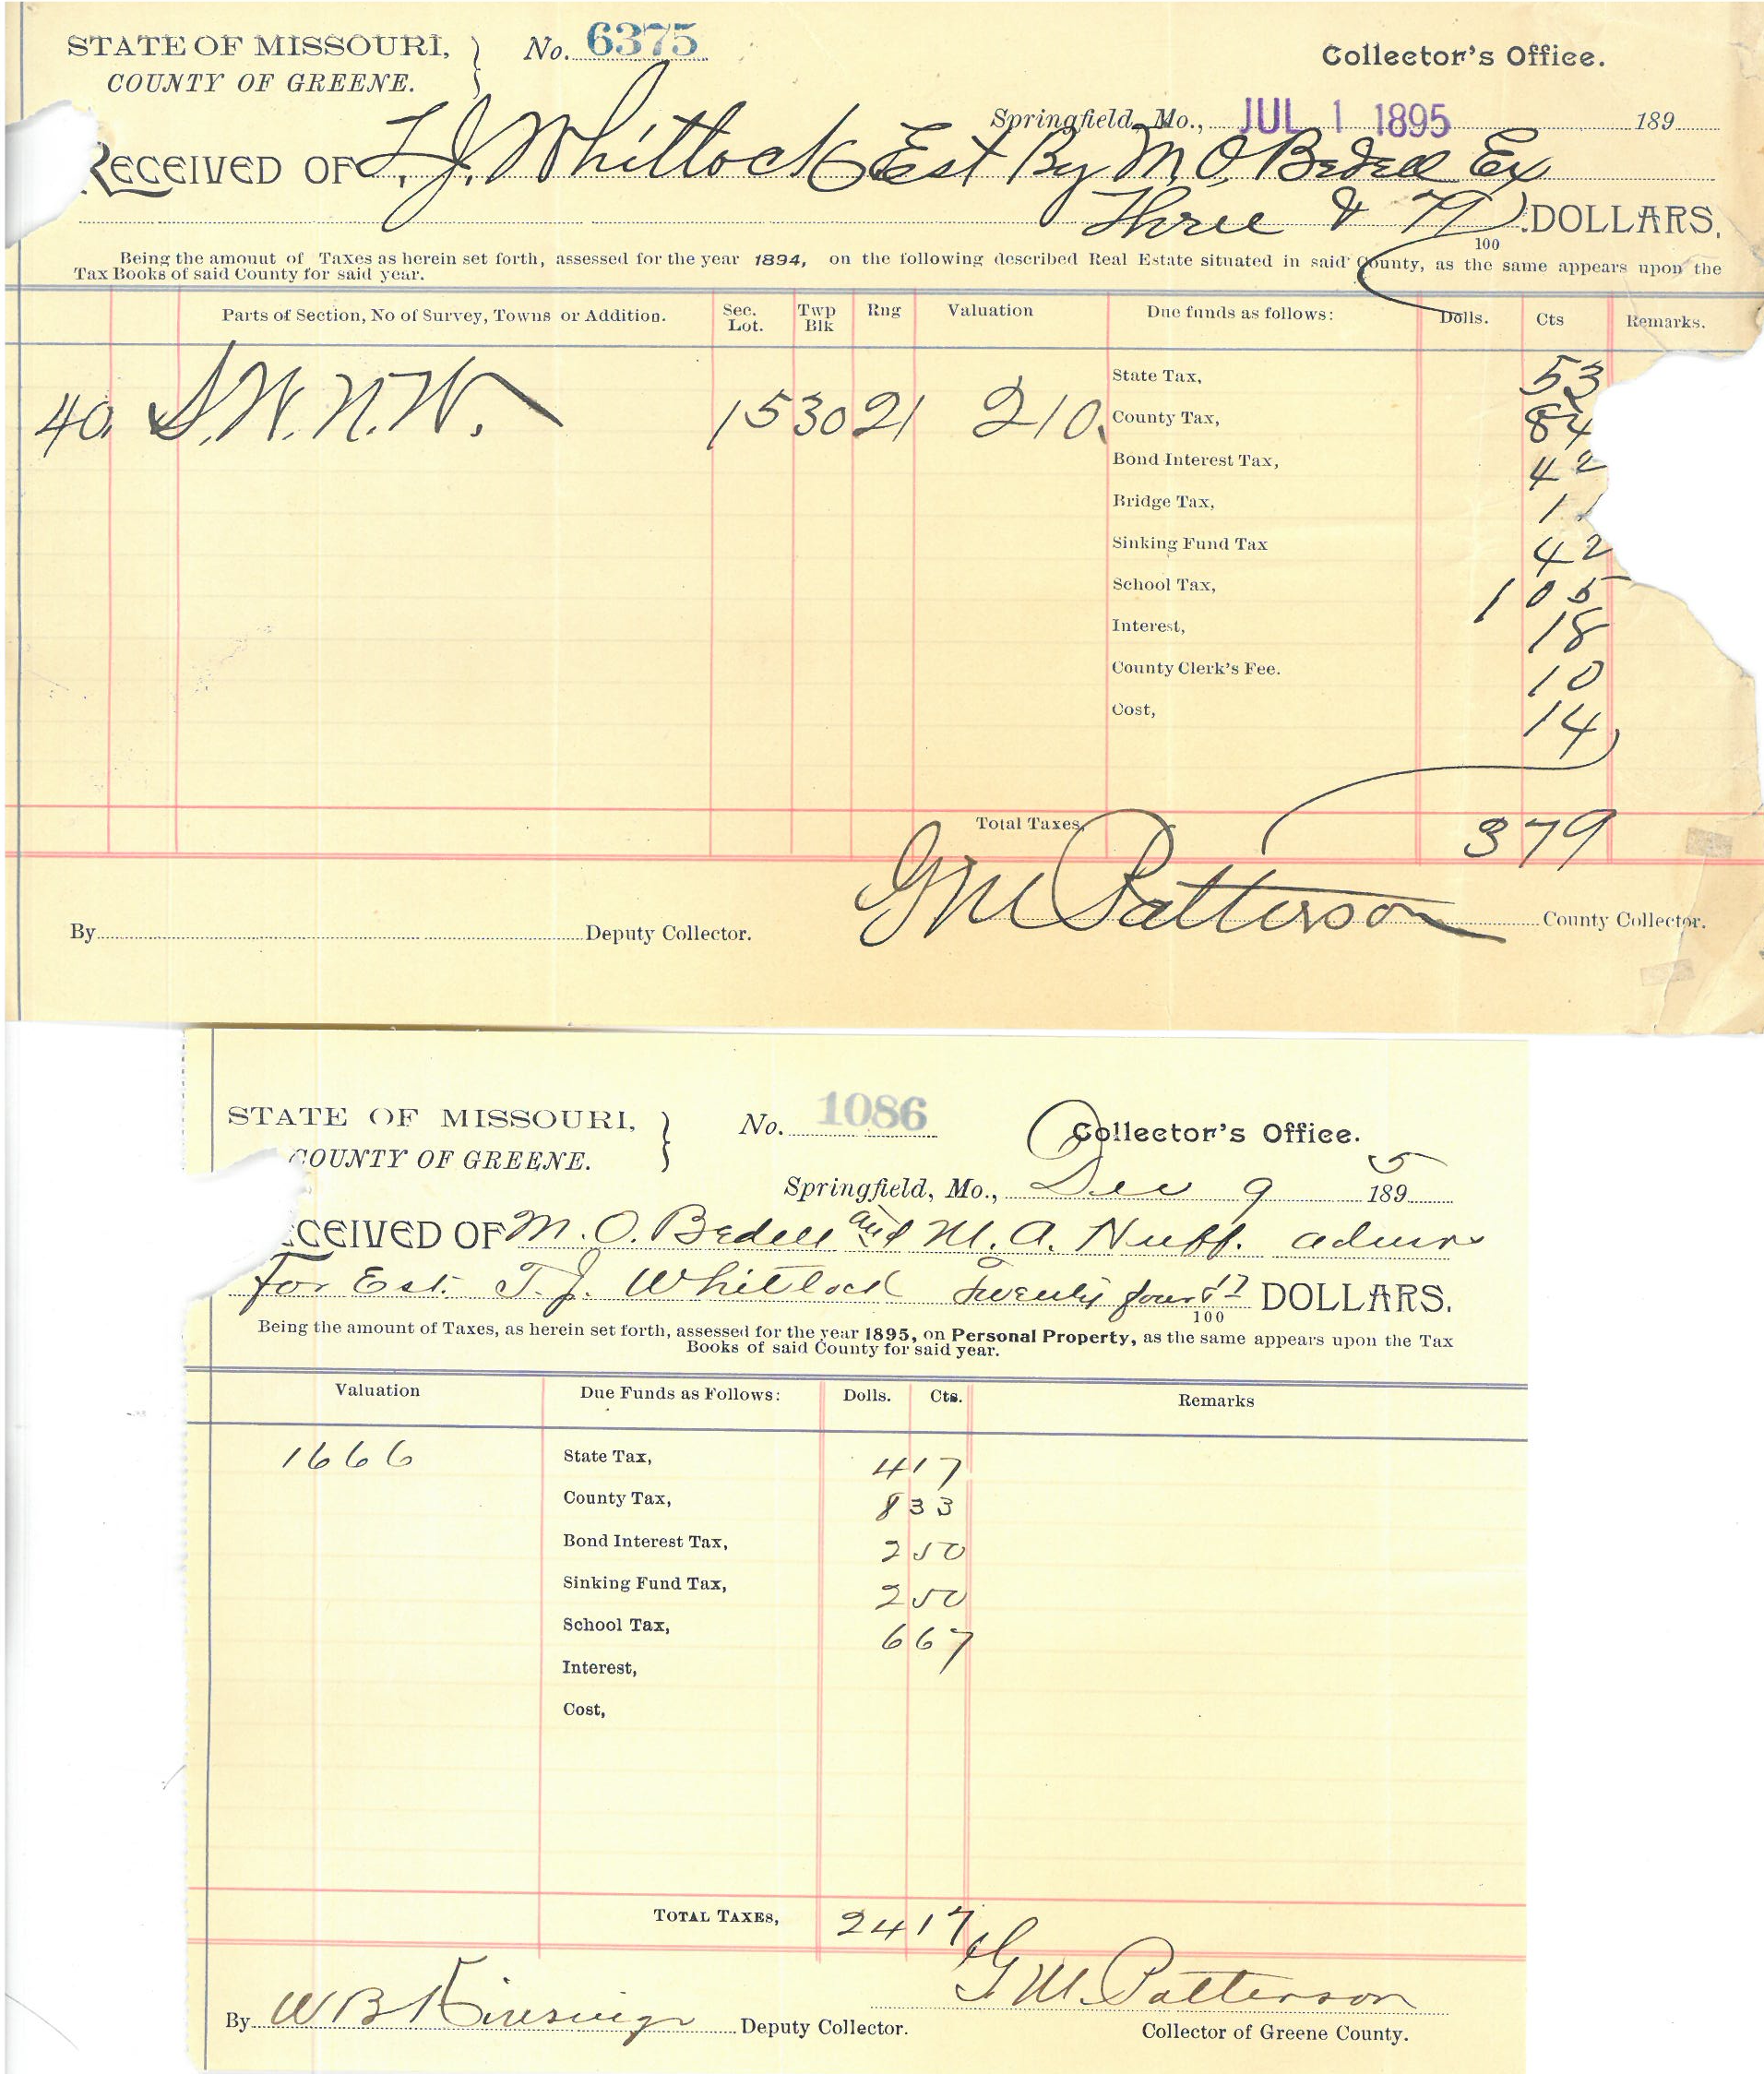 STATE OF MISSOURI, } No. 6375 Collector's Office.
COUNTY OF GREENE.
Springfield, Mo., JUL 1 1895 189
RECEIVED OF T. J. Whitlock Est By M. O. Bedell Ex
Three & 79/100 DOLLARS.
Being the amount of Taxes as herein set forth, assessed for the year 1894, on the following described Real Estate situated in said County, as the same appears upon the
Tax Books of said County for said year.
Parts of Section, No of Survey, Towns or Addition. Sec. Lot. Twp Blk Rng Valuation Due funds as follows: Dolls. Cts Remarks.
40. S.W. N.W. 15 30 21 210.
State Tax, 53
County Tax, 84
Bond Interest Tax, 42
Bridge Tax, 11
Sinking Fund Tax 42
School Tax, 1 05
Interest, 18
County Clerk's Fee. 10
Cost, 14
Total Taxes, 3 79
G M Patterson County Collector.
By Deputy Collector.
STATE OF MISSOURI, } No. 1086 Collector's Office.
COUNTY OF GREENE.
Springfield, Mo., Dec 9 1895
CEIVED OF M. O. Bedell and M. A. Nuff. admrs
for Est. T. J. Whitlock Twenty four 17/100 DOLLARS.
Being the amount of Taxes, as herein set forth, assessed for the year 1895, on Personal Property, as the same appears upon the Tax
Books of said County for said year.
Valuation Due Funds as Follows: Dolls. Cts. Remarks
1666 State Tax, 4 17
County Tax, 8 33
Bond Interest Tax, 2 50
Sinking Fund Tax, 2 50
School Tax, 6 67
Interest,
Cost,
TOTAL TAXES, 24 17
G M. Patterson
By W B Deputy Collector.
Collector of Greene County.